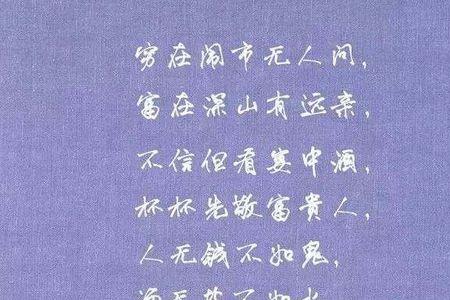 穷在闹市无人问，
富在深山有远亲，
不信但看宴中酒，
杯杯先敬富贵人，
人无钱不如鬼，